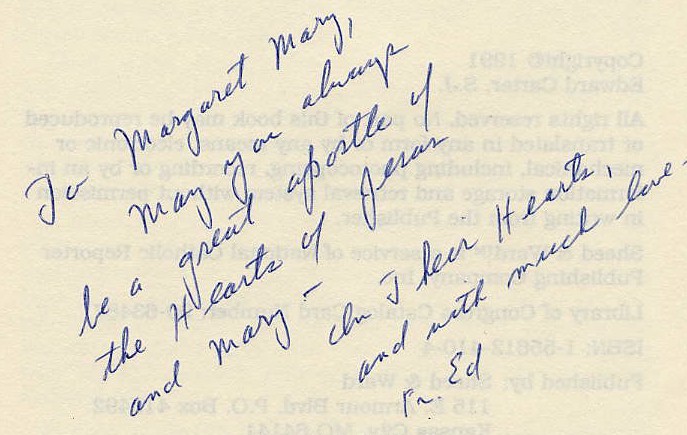 To Margaret Mary,
May you always
be a great apostle of
the Hearts of Jesus
and Mary – In Their Hearts,
and with much love –
Fr. Ed
Copyright© 1991
Edward Carter, S.J.
All rights reserved. No part of this book may be reproduced
or translated in any form or by any means, electronic or
mechanical, including photocopying, recording or by an in-
formation storage and retrieval system without permission
in writing from the Publisher.
Sheed & Ward™ is a service of National Catholic Reporter
Publishing Company, Inc.
Library of Congress Catalog Card Number:
ISBN: 1-55612-410-4
Published by: Sheed & Ward
115 E. Armour Blvd. P.O. Box
Kansas City, MO 64141